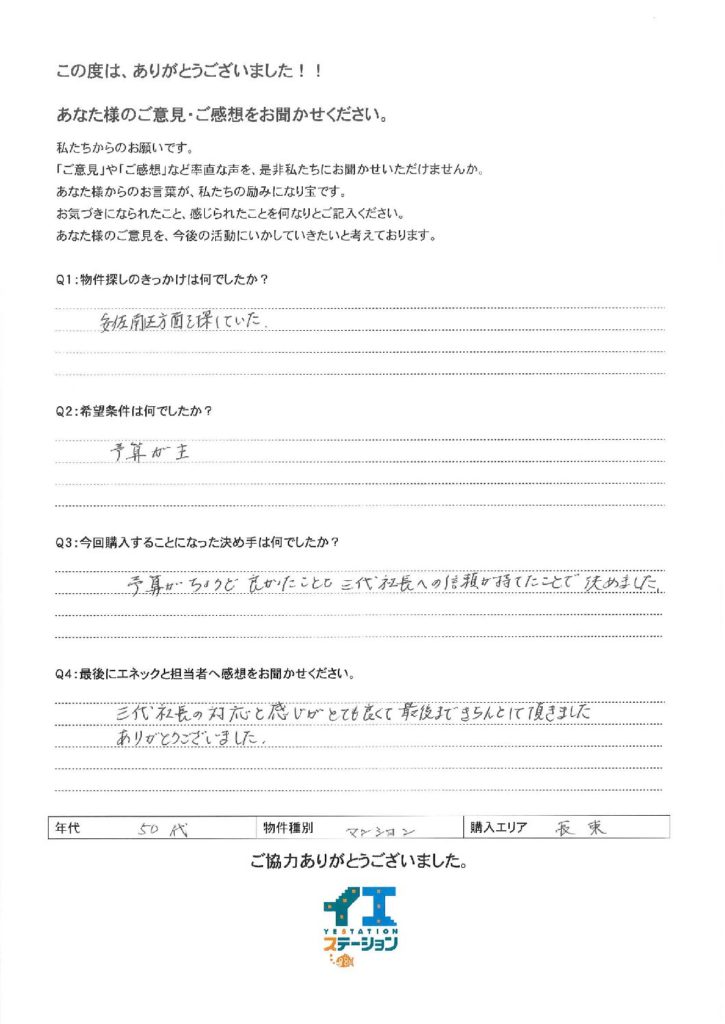 この度は、ありがとうございました！！
あなた様のご意見・ご感想をお聞かせください。
私たちからのお願いです。
「ご意見」や「ご感想」など率直な声を、是非私たちにお聞かせいただけませんか。
あなた様からのお言葉が、私たちの励みになり宝です。
お気づきになられたこと、感じられたことを何なりとご記入ください。
あなた様のご意見を、今後の活動にいかしていきたいと考えております。
Q1：物件探しのきっかけは何でしたか？
安佐南区方面を探していた.
Q2：希望条件は何でしたか？
予算が主
Q3：今回購入することになった決め手は何でしたか？
予算がちょうど良かたことと三代社長への信頼が持てたことで決めました,
Q4：最後にエネックと担当者へ感想をお聞かせください。
三代社長の対応と感じがとても良くて最後まできちんとして頂きました
ありがとうございました.
年代 50代 物件種別 マンション 購入エリア 長束
ご協力ありがとうございました。
イエ
YESTATION
ステーション